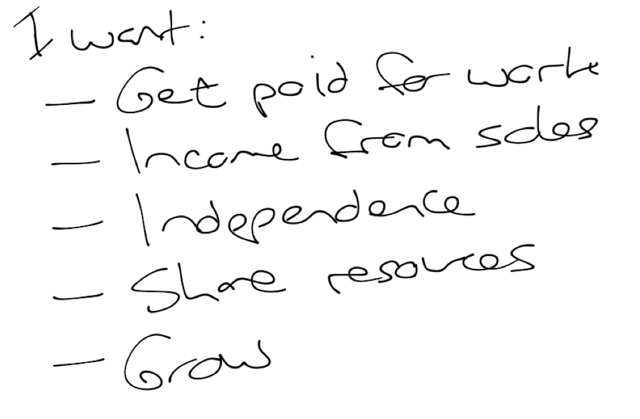 I want:
— Get paid for work
— Income from sales
— Independence
— Share resources
— Grow